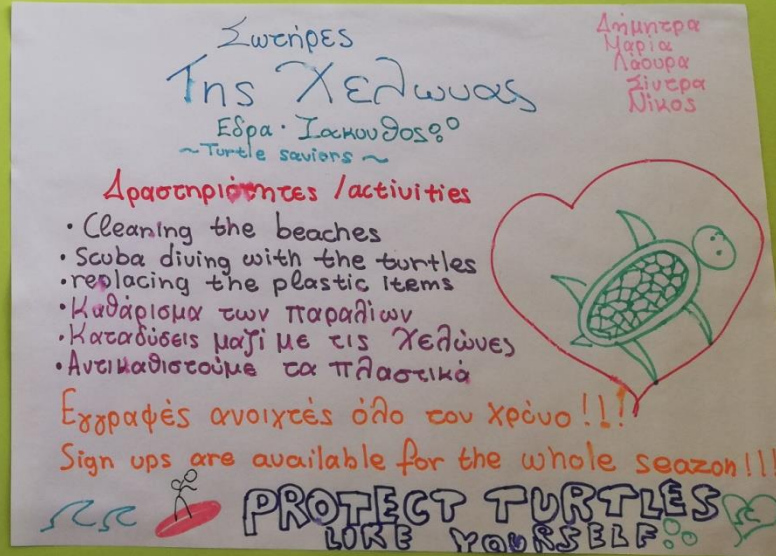 Σωτήρες
Της Χελωνας
Εδρα· Ζακυνθος
~Turtle saviors~
Δήμητρα
Μαρία
Λάουρα
Σίντρα
Νίκος
Δραστηριότητες /activities
• Cleaning the beaches
• Scuba diving with the turtles
• replacing the plastic items
• Καθάρισμα των παραλίων
• Καταδύσεις μαζί με τις Χελώνες
• Αντικαθιστούμε τα πλαστικά
Εγγραφές ανοιχτές όλο τον χρόνο!!!
Sign ups are available for the whole seazon!!!
PROTECT TURTLES
LIKE YOURSELF